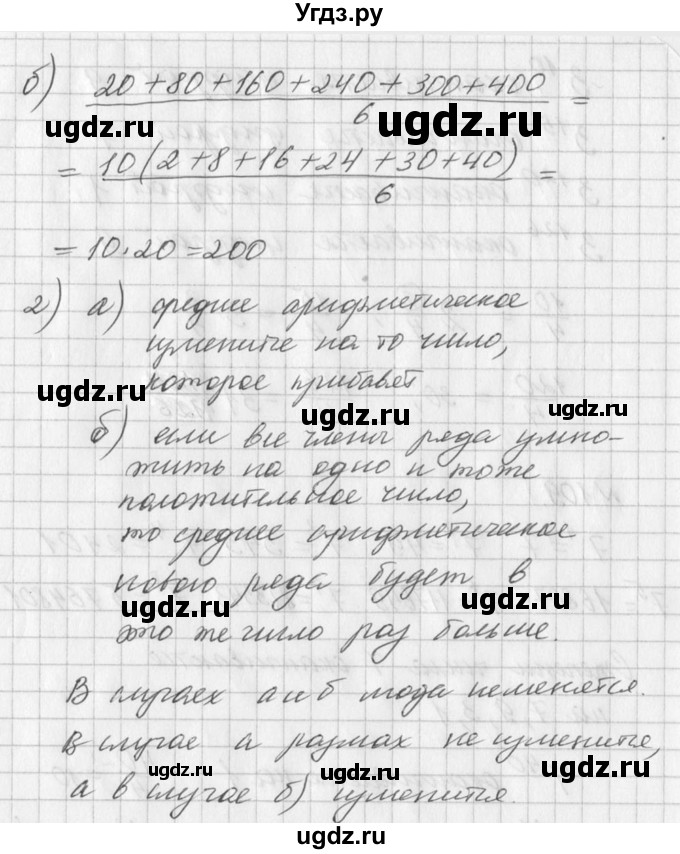 Угдз.ру
б) 20+80+160+240+300+400 / 6 =
ugdz.ru ugdz.ru
= 10(2+8+16+24+30+40) / 6 =
= 10·20=200
2) а) средние арифметическое
измените на то число,
ugdz.ru
которое прибавят
ugdz.ru
б) если все члены ряда умно-
жить на одно и тоже
положительное число,
ugdz.ru
то среднее арифметическое
нового ряда будет в
ugdz.ru ugdz.ru
это же число раз больше.
В случаех а и б мода неменятся.
ugdz.ru ugdz.ru
В случае а размах не измените,
ugdz.ru
а в случае б) изменится.
ugdz.ru
ugdz.ru